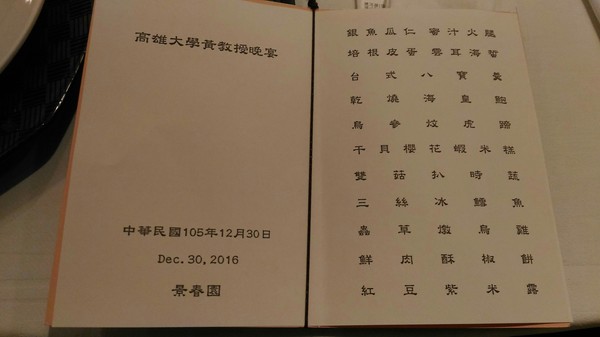 高雄大學黃教授晚宴
中華民國105年12月30日
Dec. 30, 2016
景春園
銀魚瓜仁蜜汁火腿
培根皮蛋雲耳海蜇
台式八寶羹
乾燒海皇鮑
烏參炆虎蹄
干貝櫻花蝦米糕
雙菇扒時蔬
三絲冰鱈魚
蟲草燉烏雞
鮮肉酥椒餅
紅豆紫米露